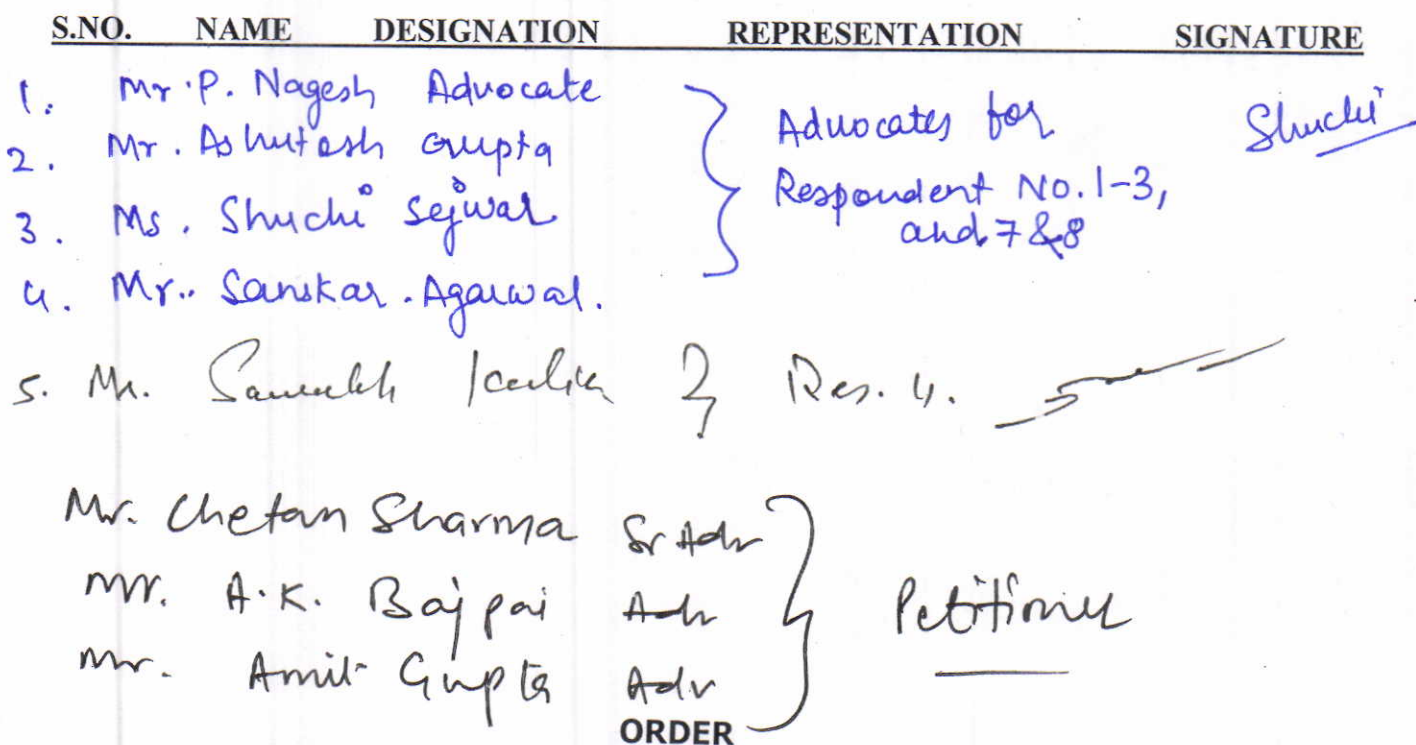 S.NO. NAME DESIGNATION REPRESENTATION SIGNATURE
1. Mr. P. Nagesh Advocate
2. Mr. Ashutosh Gupta
3. Ms. Shuchi Sejwal
4. Mr. Sanskar Agarwal.
Advocates for
Respondent No. 1-3,
and 7 & 8
Shuchi
5. Mr. Saurabh Kalia } Res. 4.
Mr. Chetan Sharma Sr Adv
Mr. A.K. Bajpai Adv
Mr. Amit Gupta Adv
Petitioner
ORDER